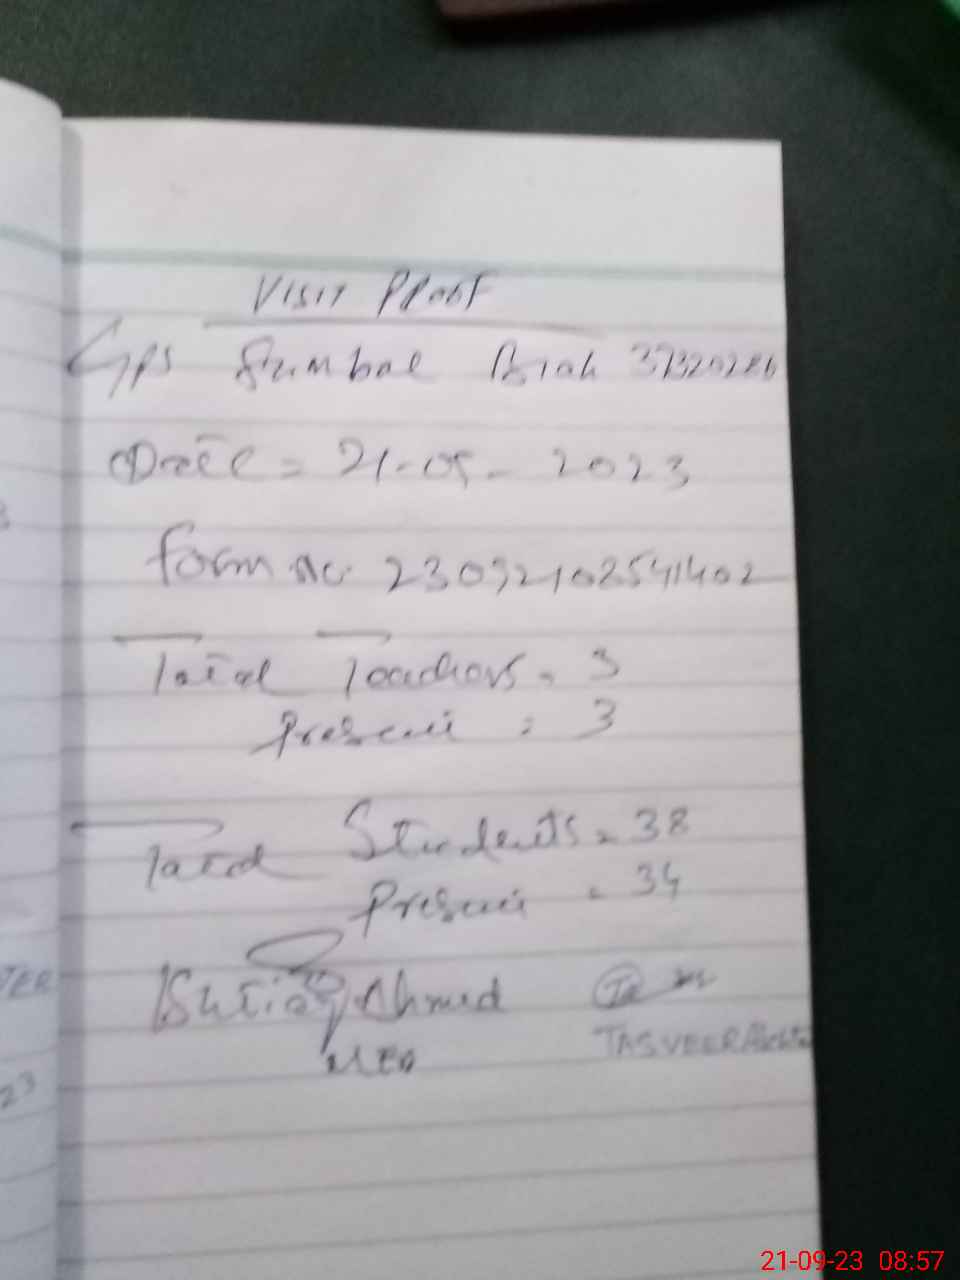 VISIT PROOF
GPS Sumbal Biah 37320286
Date = 21-09-2023
Form no. 23092108541402
Total Teachers = 3
Present = 3
Total Students = 38
Present = 34
Ishtiaq Ahmed
MEA
TASVEER Akhta
TER
23
21-09-23 08:57